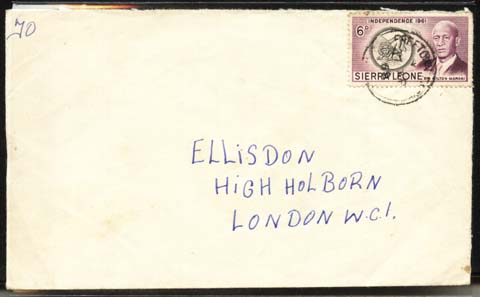 70
INDEPENDENCE 1961
6D
SIERRA LEONE
SIR MILTON MARGAI
FREETOWN
ELLISDON
HIGH HOLBORN
LONDON W.C.1.